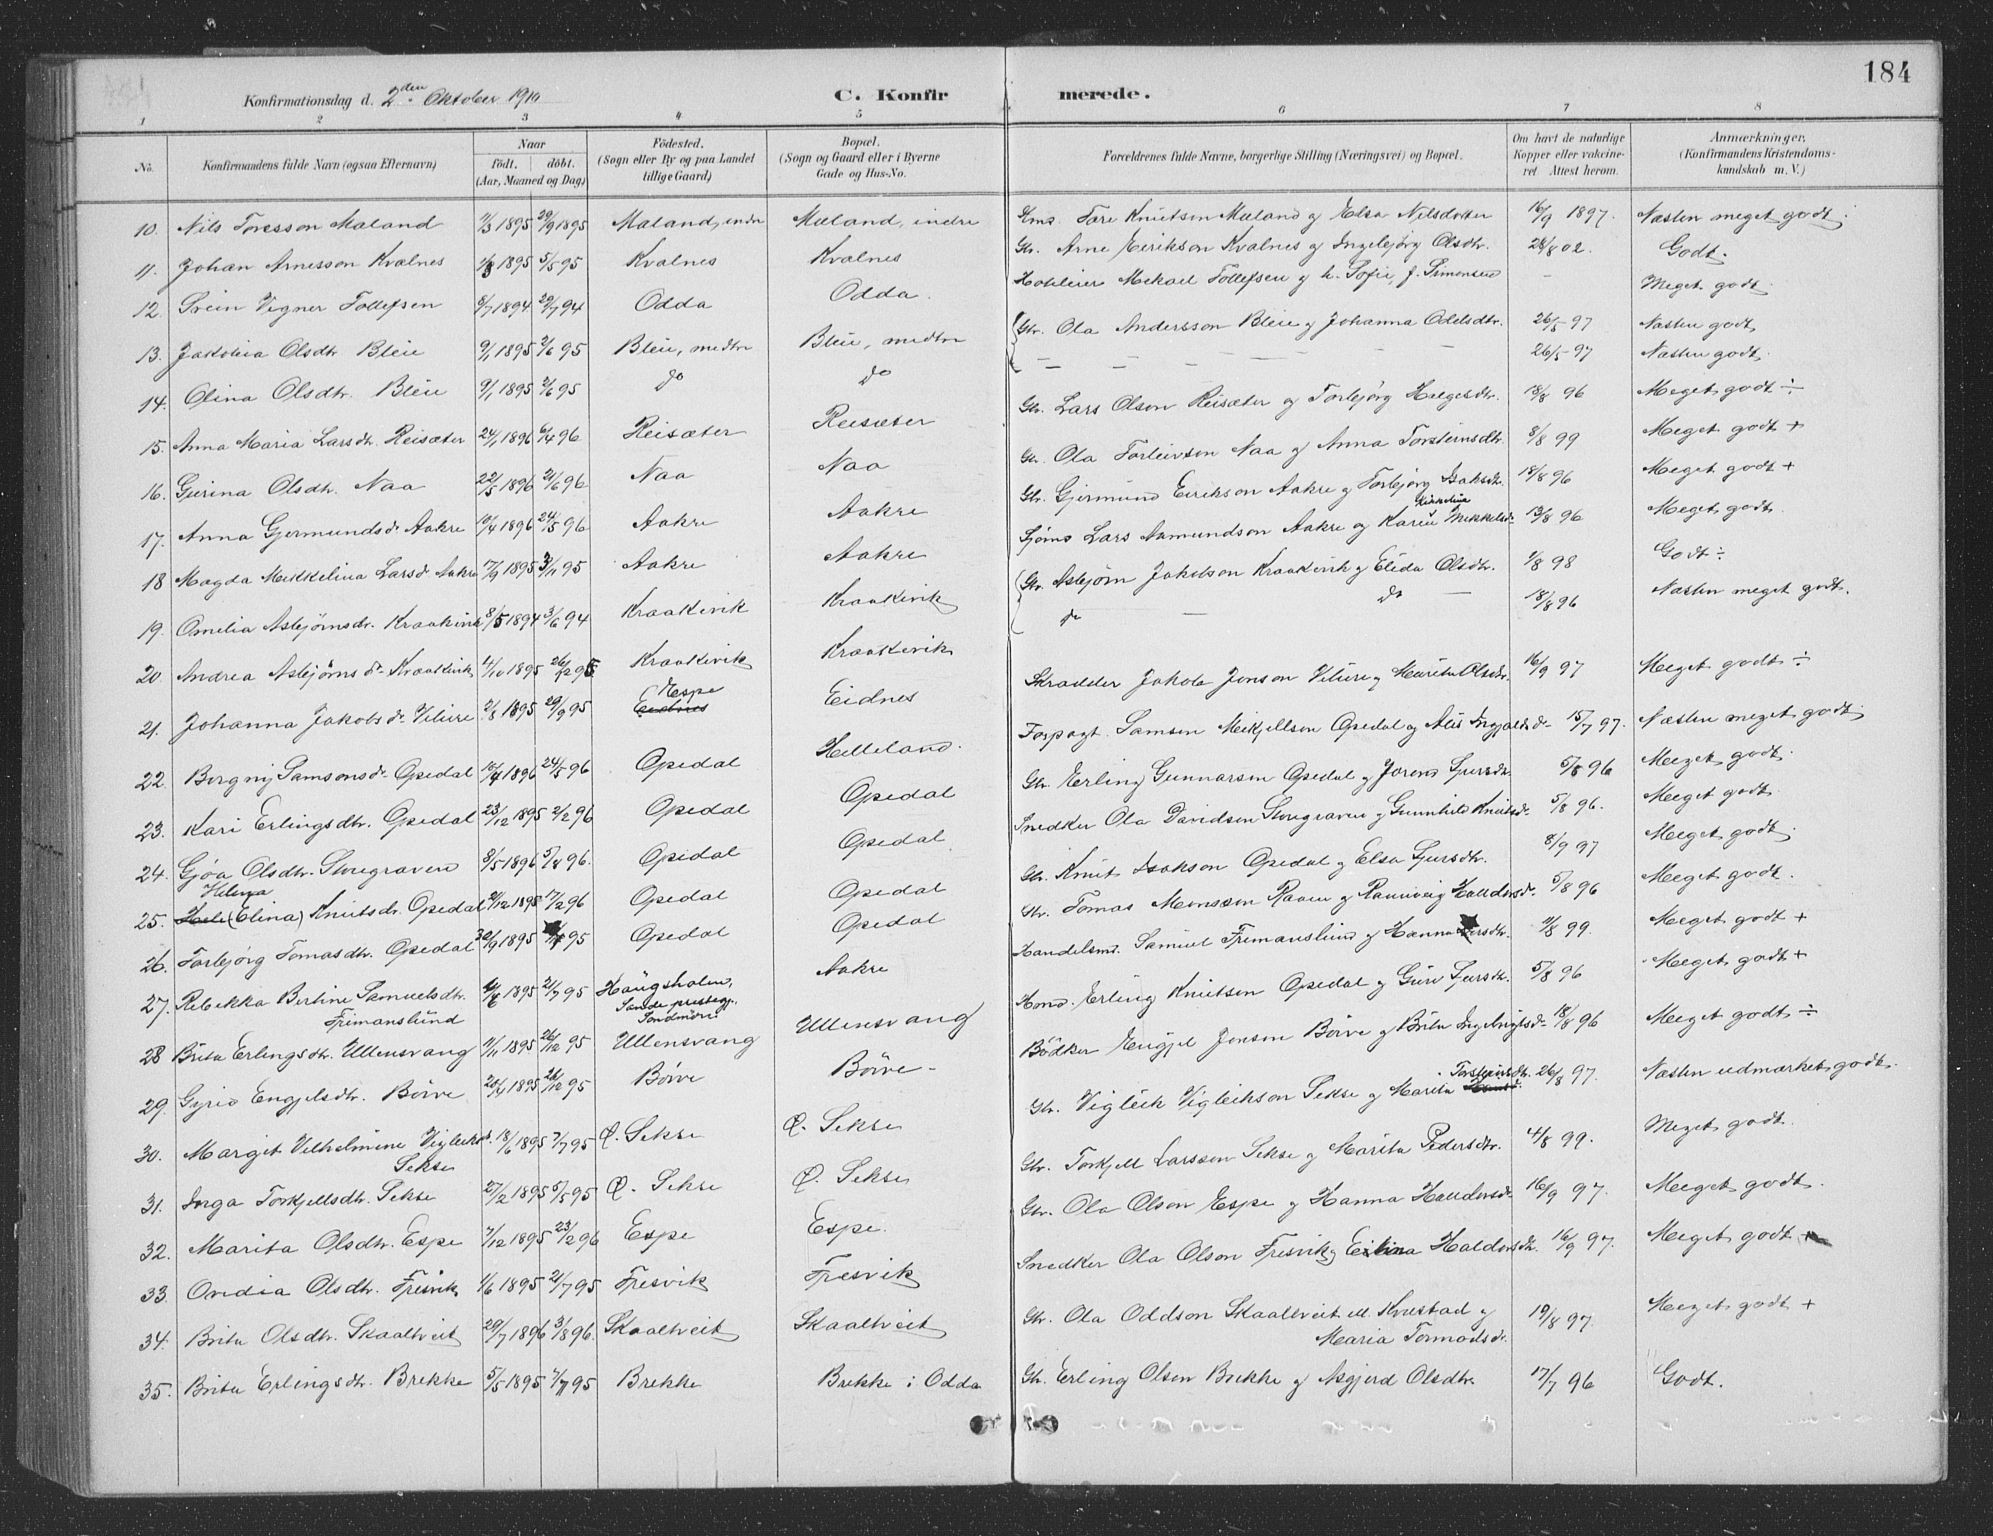 184
Konfirmationsdag d. 2den Oktober 1910
C. Konfirmerede.
1 2 3 4 5 6 7 8
No. Konfirmandens fulde Navn (ogsaa Efternavn) Naar födt. döbt. (Aar, Maaned og Dag) Födested. (Sogn eller By og paa Landet tillige Gaard) Bopæl. (Sogn og Gaard eller i Byerne Gade og Hus-No. Forældrenes fulde Navne, borgerlige Stilling (Næringsvei) og Bopæl. Om havt de naturlige Kopper eller vakcineret Attest herom. Anmærkninger. (Konfirmandens Kristendomskundskab m. V.)
10. Nils Toresson Maland 1/3 1895 29/9 1895 Maland, indre Maland, indre Kms. Tore Knutson Maland og Elsa Nilsdotter 16/9 1897. Næsten meget godt.
11. Johan Arnesson Kvalnes 1/3 1895 5/5 95 Kvalnes Kvalnes Gbr. Arne Eirikson Kvalnes og Ingebjørg Olsdtr. 28/8 02. Godt.
12. Svein Vigner Tollefsen 8/7 1894 29/7 94 Odda Odda. Hoteleier Mikael Tollefsen og h. Sofie, f. Simonsen – Meget godt.
13. Jakobia Olsdtr Bleie 9/1 1895 2/6 95 Bleie, medtre Bleie, medtre Gbr. Ola Andersson Bleie og Johanna Odelsdtr. 26/5 97 Næsten godt
14. Olina Olsdtr. Bleie 9/1 1895 2/6 95 do do — — — — — 26/5 97 Næsten godt.
15. Anna Maria Larsdtr. Reisæter 24/1 1896 6/4 96 Reisæter Reisæter Gbr. Lars Olson Reisæter og Torbjørg Helgesdtr. 18/8 96 Meget godt ÷
16. Gurina Olsdtr. Naa 22/5 1896 21/6 96 Naa Naa Gbr. Ola Torleivson Naa og Anna Torsteinsdtr. 8/8 99 Meget godt +
17. Anna Gjermundsdr Aakre 10/4 1896 24/5 96 Aakre Aakre Gbr. Gjermund Eirikson Aakre og Torbjørg Isaksdtr. 18/8 96 Meget godt +
18 Magda Mikkelina Larsdr Aakre 17/9 1895 3/11 95 Aakre Aakre Sjøms Lars Aamundson Aakre og Karen Mikkelina Mikkelsdr 13/8 96 Meget godt.
19. Amelia Asbjørnsdr. Kraakevik 8/5 1894 3/6 94 Kraakevik Kraakevik Gbr. Asbjørn Jakobson Kraakevik og Elida Olsdtr. 1/8 98 Godt ÷
20. Andrea Asbjørnsdr Kraakevik 11/10 1895 26/12 95 Kraakevik Kraakevik do — do — 18/8 96 Næsten meget godt.
21. Johanna Jakobsdr Vilure 2/8 1895 29/9 95 Espe Eidnes Skradder Jakob Jonson Vilure og Marita Olsdtr. 16/9 97 Meget godt ÷
22. Borgny Samsonsdr Opedal 10/4 1896 24/5 96 Opedal Helleland. Forpagt. Samson Mikjellson Opedal og Alis Ingjaldsdr 15/7 97. Næsten meget godt.
23. Kari Erlingsdtr. Opedal 23/12 1895 2/2 96 Opedal Opedal Gbr. Erling Gunnarson Opedal og Joren Sjursdtr. 5/8 96 Meget godt.
24. Gjøa Olsdtr. Storegraven 3/5 1896 5/8 96. Opedal Opedal Snedker Ola Davidsen Storegraven og Gunnhild Knutsdr 5/8 96. Meget godt.
25. Helena (Elina) Knutsdr. Opedal 21/12 1895 17/2 96 Opedal Opedal Gbr. Knut Isakson Opedal og Elsa Sjursdtr. 8/9 97 Meget godt.
26. Torbjørg Tomasdtr. Opedal 30/9 1895 95 Opedal Opedal Gbr. Tomas Monsson Raaen og Rannveig Haldorsdr. 5/8 96 Meget godt.
27. Rebekka Bertine Samuelsdtr. Frimanslund 6/6 1895 21/7 95 Haugsholm, Sande prestegj. Søndmøre Aakre Handelsmd. Samuel Frimanslund og Hanna Larsdtr. 11/8 99. Meget godt +
28 Brita Erlingsdtr. Ullensvang 1/11 1895 26/12 95 Ullensvang Ullensvang Hmd. Erling Knutson Opedal og Guro Sjursdtr. 5/8 96 Meget godt +
29. Gyrid Engjelsdtr. Børve 20/9 1895 26/12 95 Børve Børve – Bødker Engjel Jonson Børve og Brita Ingebrigtsdr 18/8 96 Meget godt ÷
30. Margit Vilhelmine Vigleiksdr. Sekse 18/6 1895 7/7 95 Ø. Sekse Ø. Sekse Gbr. Vigleik Vigleikson Sekse og Marita Torsteinsdtr. 26/8 97. Næsten udmærket godt.
31. Inga Torkjellsdtr. Sekse 27/2 1895 5/5 95 Ø. Sekse Ø. Sekse Gbr. Torkjell Larsson Sekse og Marita Pedersdtr. 4/8 99. Meget godt.
32. Marita Olsdtr. Espe 7/12 1895 23/2 96 Espe Espe. Gbr. Ola Olson Espe og Hanna Haldorsdr 16/9 97. Meget godt.
33. Ovidia Olsdtr. Fresvik 1/6 1895 21/7 95 Fresvik Fresvik Snedker Ola Olson Fresvik og Elina Haldorsdtr. 16/9 97. Meget godt +
34. Brita Olsdtr. Skaaltveit 20/7 1896 31/8 96. Skaaltveit Skaaltveit Gbr. Ola Oddson Skaaltveit ell. Kvestad og Maria Tormodsdr. 19/8 97. Meget godt +
35. Brita Erlingsdtr. Brekke 5/5 1895 7/7 95 Brekke Brekke i Odda Gbr. Erling Olson Brekke og Asgjerd Olsdtr. 17/7 96 Godt.